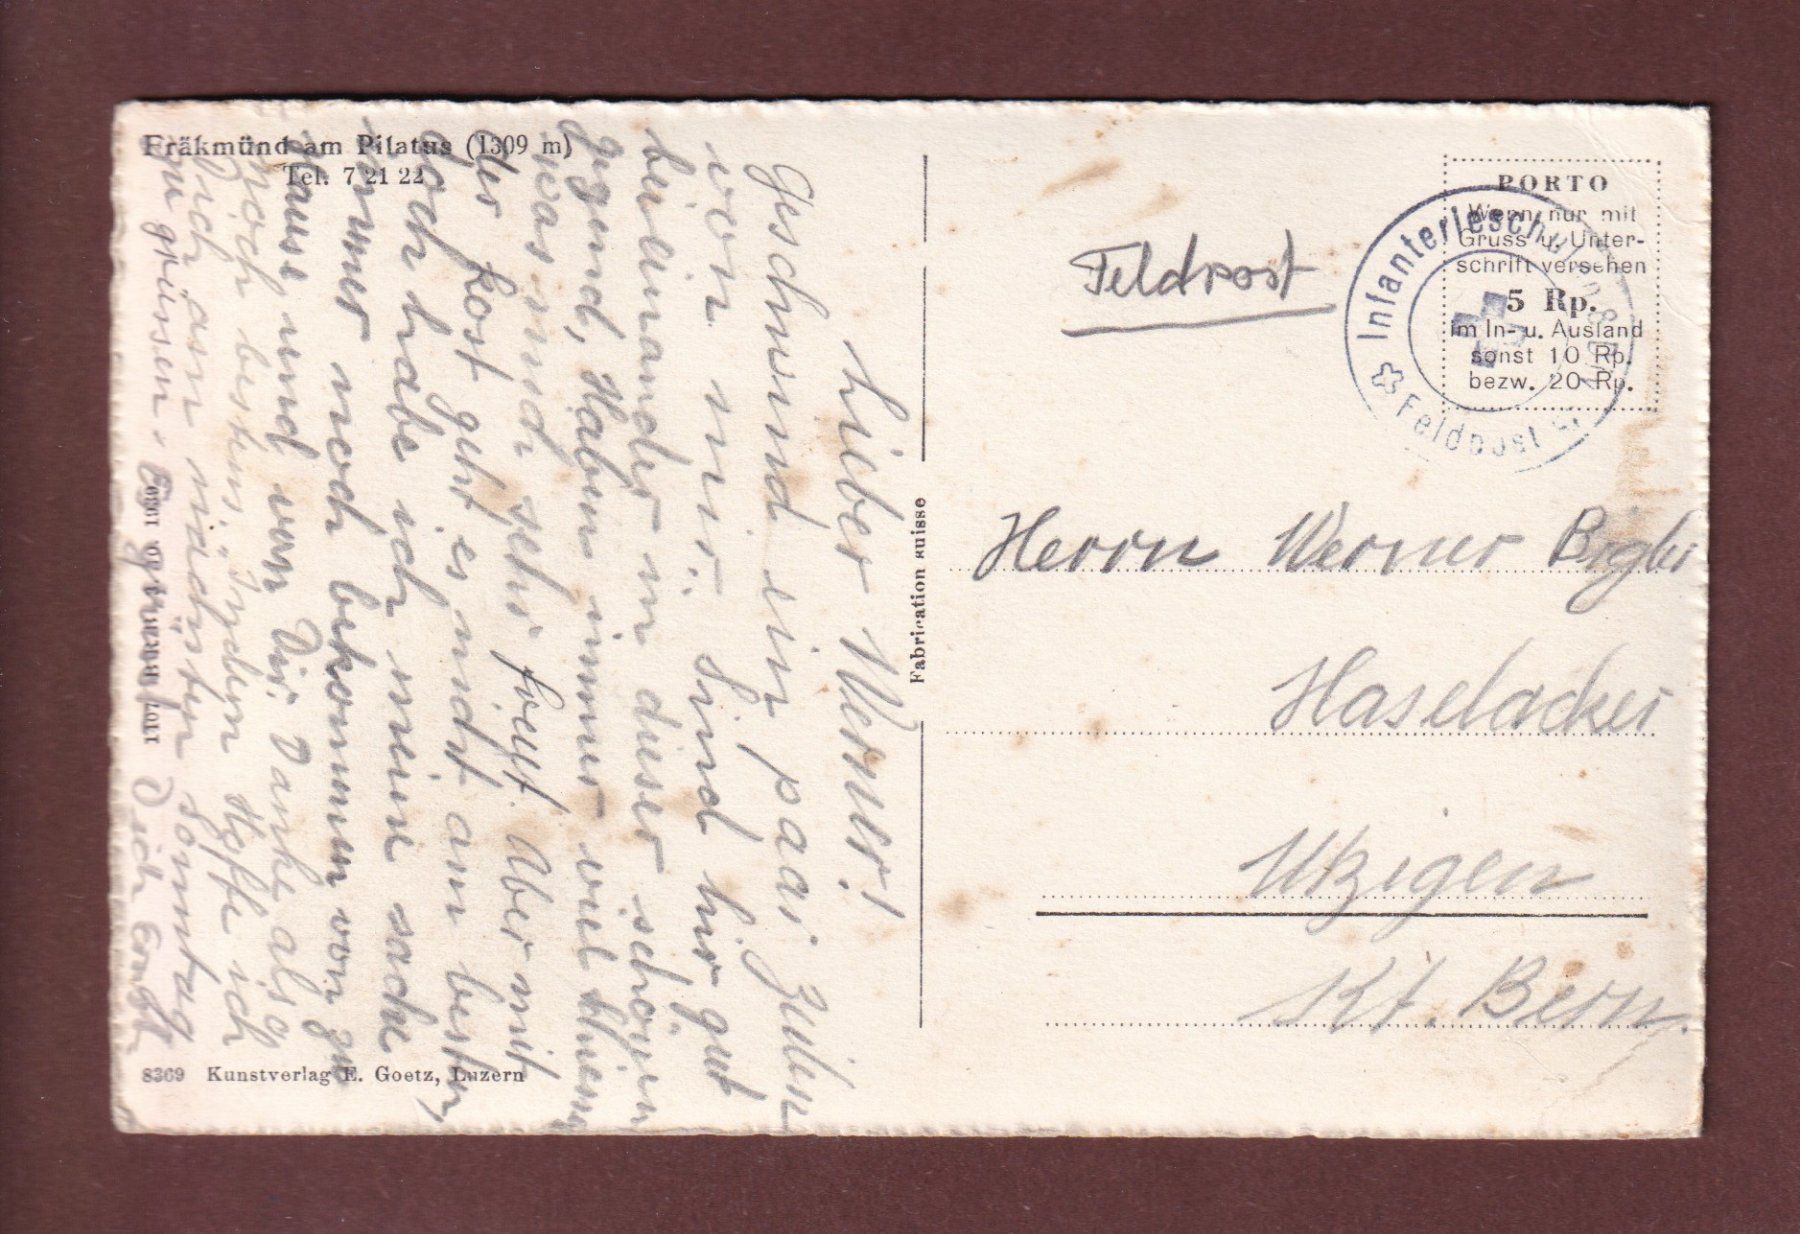 Fräkmünd am Pilatus (1309 m)
Tel. 7 21 22
Lieber Werner!
Geschwind ein paar Zeilen
von mir. Sind hir gut
beieinander in dieser schöynen
gegend, Haben immer viel
was mich sehr freyt. Aber mit
der Kost geht es nicht am besten,
doch habe ich meine sache
immer noch bekommen von zu
Hause und von Dir. Danke also
noch bestens. Hoffe ich
Dich am nächsten Sonntag
zu grüssen. Dich Ernst
8369 Kunstverlag E. Goetz, Luzern
Fabrication suisse
Feldpost
PORTO
Wenn nur mit
Gruss u. Unter-
schrift versehen
5 Rp.
im In- u. Ausland
sonst 10 Rp.
bezw. 20 Rp.
Infanterieschul
Feldpost
Herrn Werner Bigler
Haselacker
Utzigen
Kt. Bern.